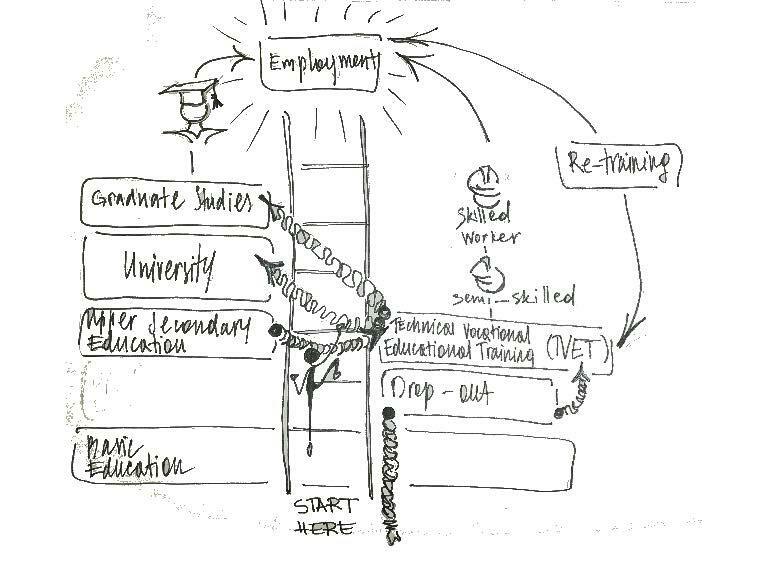 Employment
Re-training
Graduate Studies
Skilled
Worker
University
Semi-skilled
Upper Secondary
Education
Technical Vocational
Educational Training (TVET)
Drop-out
Basic
Education
START
HERE